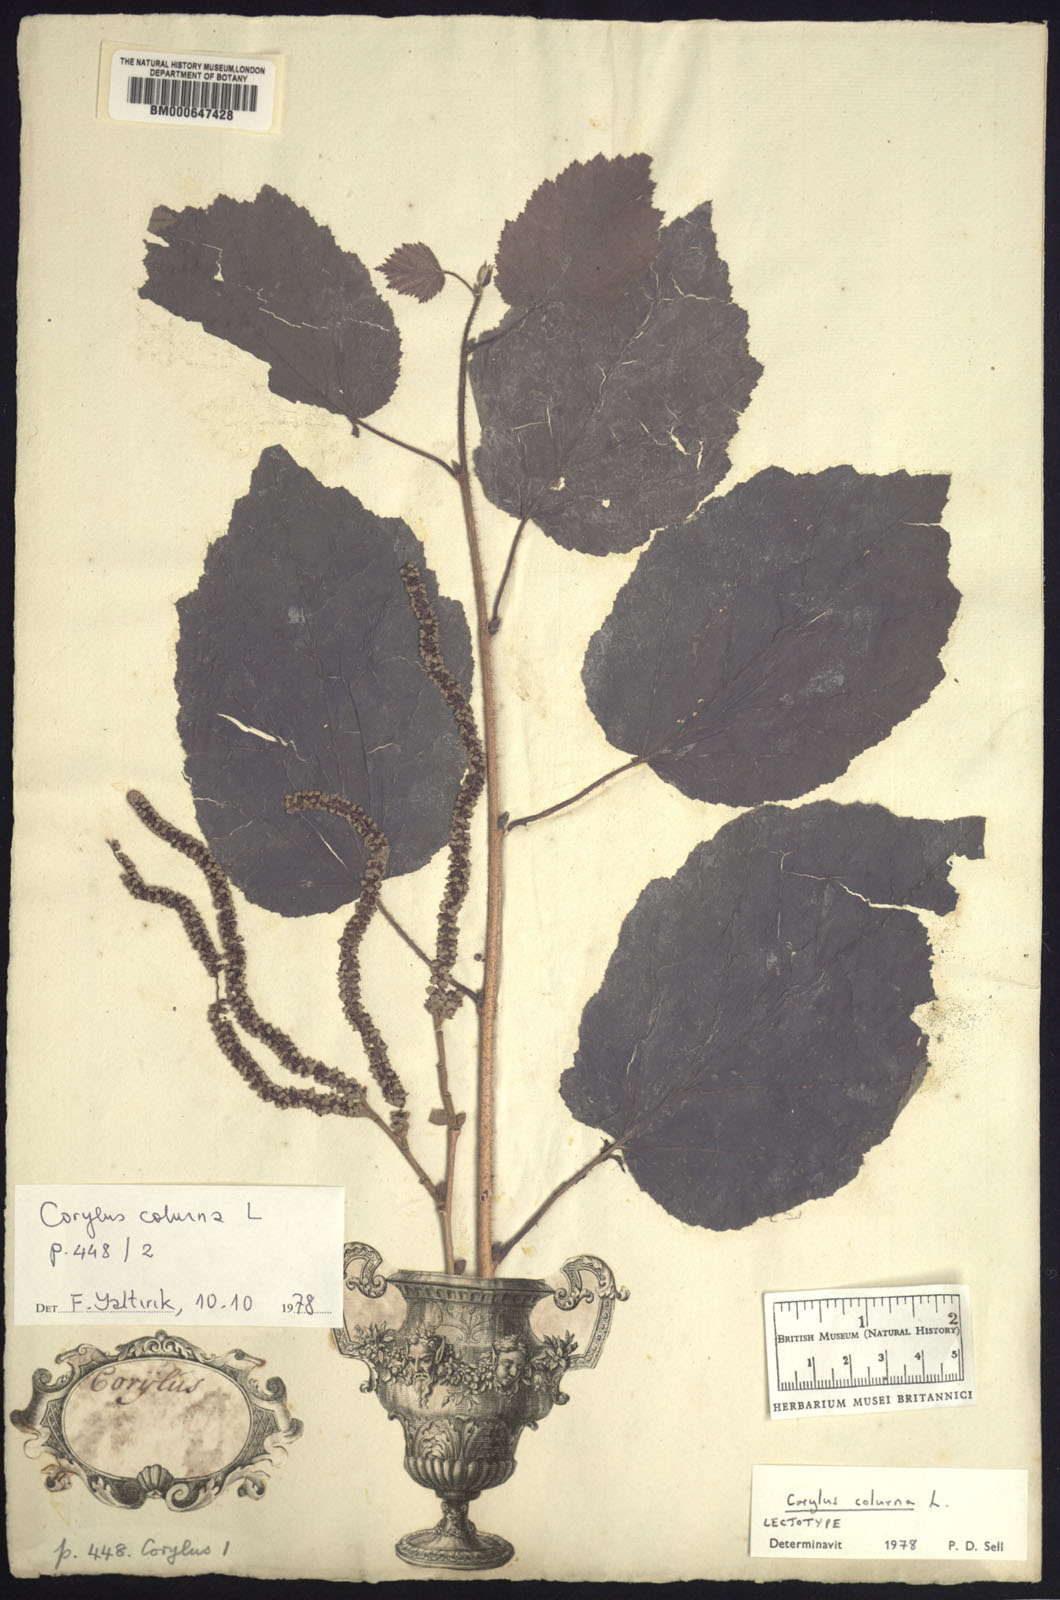 THE NATURAL HISTORY MUSEUM, LONDON
DEPARTMENT OF BOTANY
BM000647428
Corylus colurna L
p. 448 / 2
DET F. Yaltirik, 10.10 1978
Corylus
p. 448. Corylus 1
1 2
BRITISH MUSEUM (NATURAL HISTORY)
1 2 3 4 5
HERBARIUM MUSEI BRITANNICI
Corylus colurna L.
LECTOTYPE
Determinavit 1978 P. D. Sell